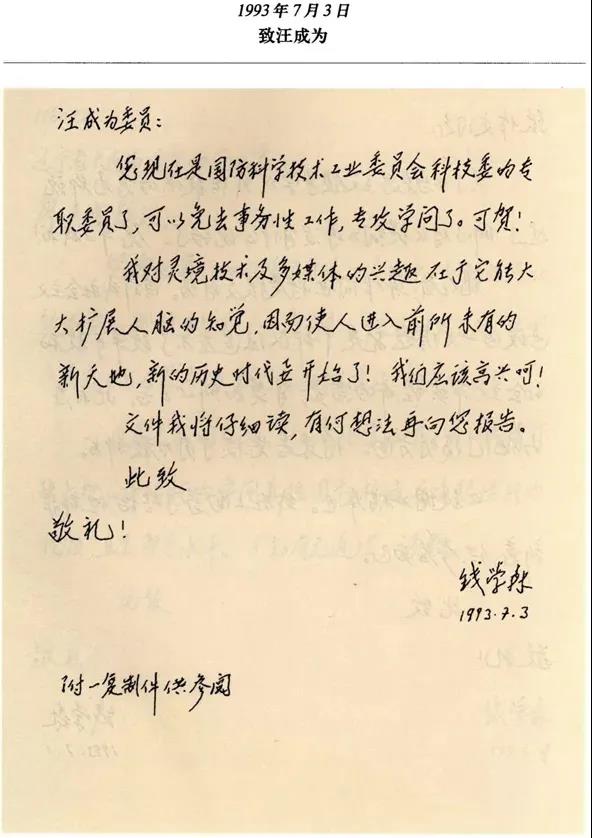 1993年7月3日
致汪成为
汪成为委员:
您现在是国防科学技术工业委员会科技委的专
职委员了,可以免去事务性工作,专攻学问了。可贺!
我对灵境技术及多媒体的兴趣在于它能大
大扩展人脑的知觉,因而使人进入前所未有的
新天地,新的历史时代要开始了!我们应该高兴呵!
文件我将仔细读,有何想法再向您报告。
此致
敬礼!
钱学森
1993.7.3
附一复制件供参阅